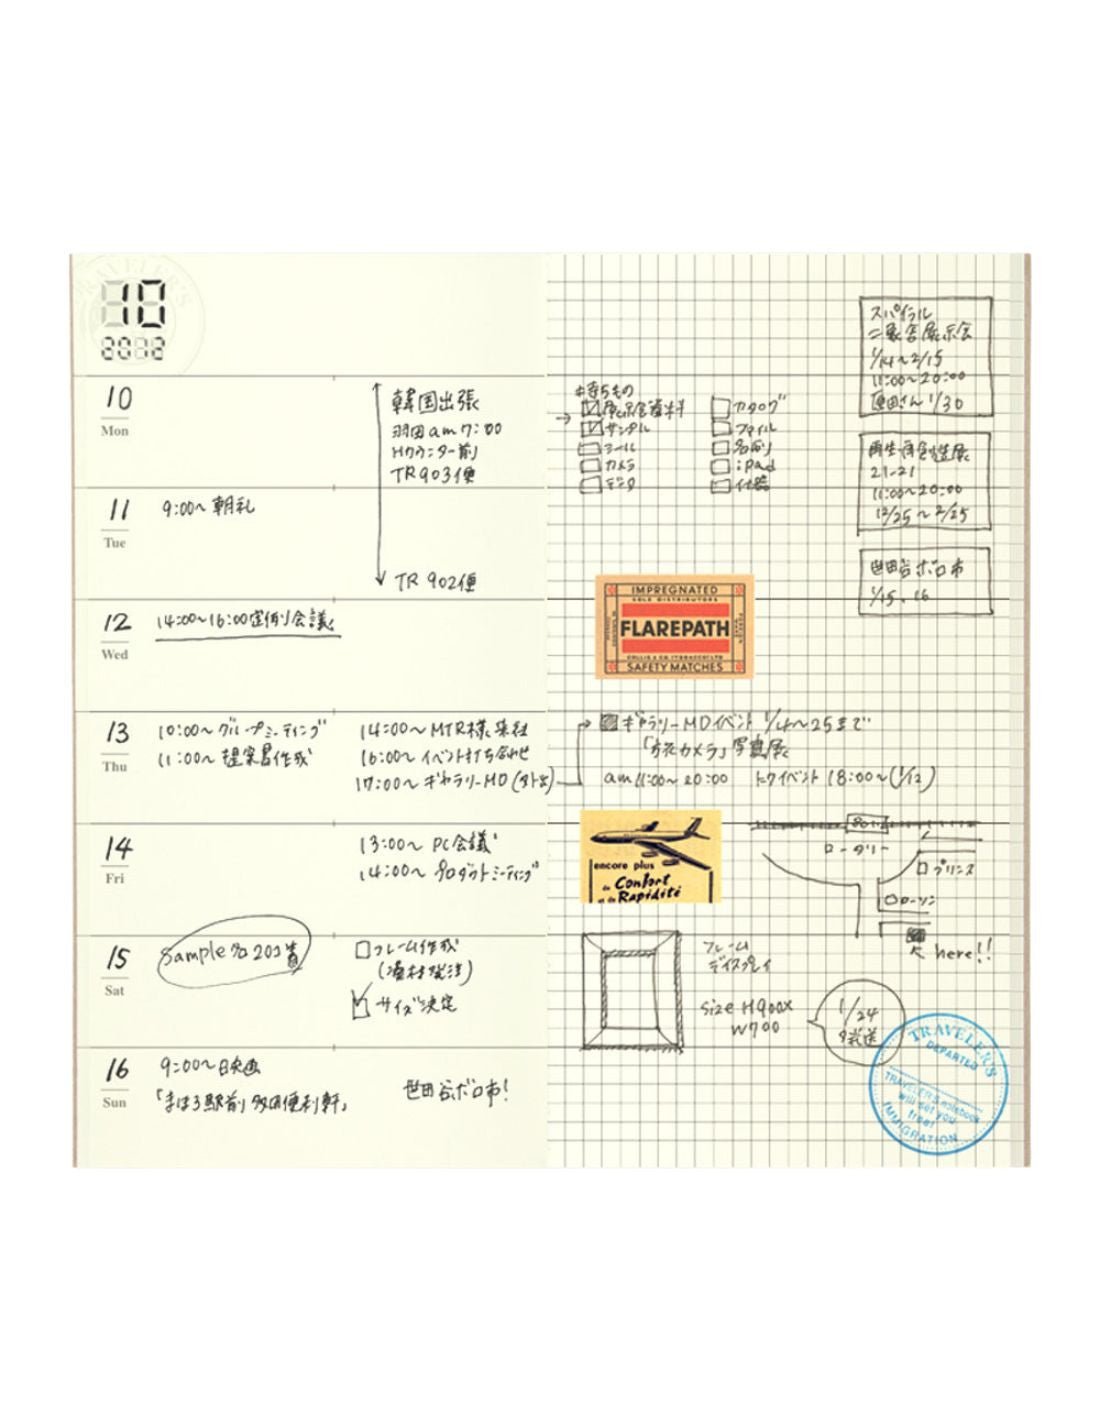 TRAVELER'S
10
2012
10
Mon
韓国出張
羽田am7:00
Hカウンター前
TR903便
11
Tue
9:00〜朝礼
TR 902便
12
Wed
14:00〜16:00定例会議
13
Thu
10:00〜グループミーティング
11:00〜提案書作成
14:00〜MTR様来社
16:00〜イベント打ち合わせ
17:00〜ギャラリーMD(外出)
14
Fri
13:00〜PC会議
14:00〜プロダクトミーティング
15
Sat
Sample
フレーム作成
サイズ決定
16
Sun
9:00〜映画
「まほろ駅前多田便利軒」
世田谷ボロ市!
持ちもの
展示会資料
サンダル
シール
カメラ
カタログ
ファイル
名刺
ipad
スパイラル
展示会
1/14〜2/15
11:00〜20:00
原田さん1/30
再生・再創造展
21-21
11:00〜20:00
12/25〜2/25
世田谷ボロ市
1/15.16
IMPREGNATED
SOLE DISTRIBUTORS
FLAREPATH
SAFETY MATCHES
ギャラリーMDイベント 1/4〜25まで
カメラ」写真展
am11:00〜20:00 トークイベント 18:00〜(1/12)
encore plus
de Confort
et de Rapidité
ロータリー
プリンス
ローソン
here!!
フレーム
ディスプレイ
size H900×
W700
1/24
発送
TRAVELER'S
DEPARTED
TRAVELER'S notebook
will set you
free!
IMMIGRATION